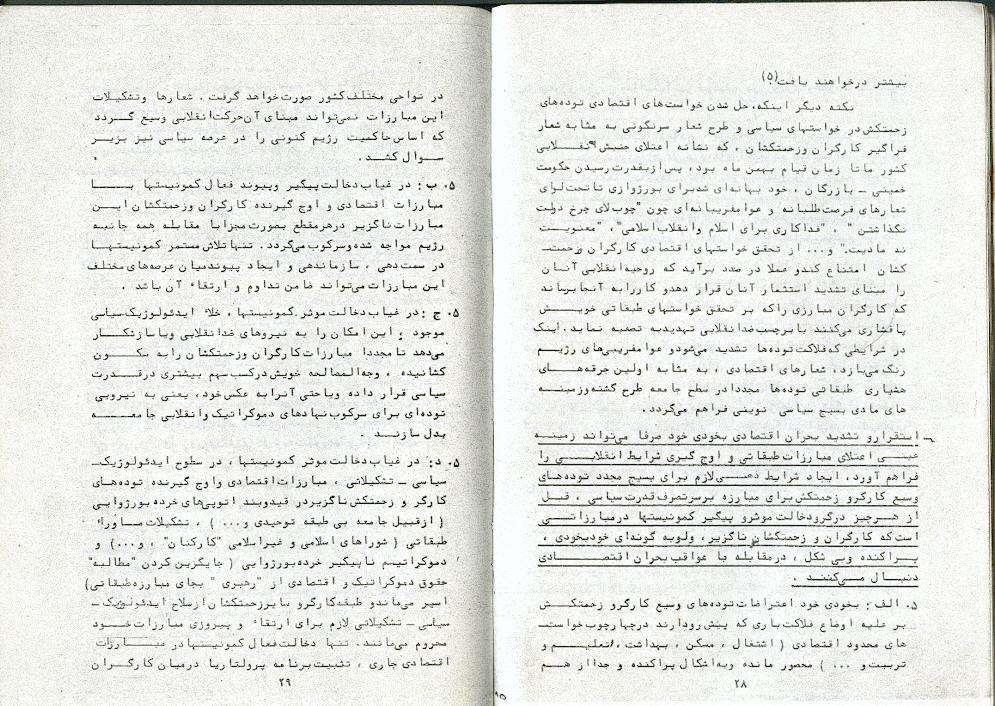 بیشتر درخواهند یافت(۵)
نکته دیگر اینکه، حل شدن خواست‌های اقتصادی توده‌های
زحمتکش در خواستهای سیاسی و طرح شعار سرنگونی به مثابه شعار
فراگیر کارگران وزحمتکشان ، که نشانه اعتلای جنبش انقلابی
کشور ما تا زمان قیام بهمن ماه بود، پس ازبقدرت رسیدن حکومت
خمینی ـ بازرگان ، خود بهانه‌ای شدبرای بورژوازی تاتحت لوای
شعارهای فرصت طلبانه و عوامفریبانه‌ای چون "چوب لای چرخ دولت
نگذاشتن " ، "فداکاری برای اسلام وانقلاب اسلامی"، "معنویت
نه مادیت" و... از تحقق خواستهای اقتصادی کارگران وزحمت‌ـ
کشان امتناع کندو عملا در صدد برآید که روحیه انقلابی آنان
را مبنای تشدید استثمار آنان قرار دهدو کاررابه آنجابرساند
که کارگران مبارزی راکه بر تحقق خواستهای طبقاتی خویش
پافشاری می‌کنند بابرچسب ضدانقلابی تهدیدبه تصفیه نماید. اینک
در شرایطی که فلاکت توده‌ها تشدید می‌شودو عوامفریبی‌های رژیم
رنگ می‌بازد، شعارهای اقتصادی ، به مثابه اولین جرقه‌های
هشیاری طبقاتی توده‌ها مجددادر سطح جامعه طرح گشته‌وزمینه
های مادی بسیج سیاسی نوینی فراهم می‌گردد.
ـ استقرارو تشدید بحران اقتصادی بخودی خود صرفا می‌تواند زمینه
عینی اعتلای مبارزات طبقاتی و اوج گیری شرایط انقلابی را
فراهم آورد، ایجاد شرایط ذهنی لازم برای بسیج مجدد توده‌های
وسیع کارگرو زحمتکش برای مبارزه برسرتصرف قدرت سیاسی ، قبل
از هرچیز درگرودخالت موثرو پیگیر کمونیستها درمبارزاتی
است‌که کارگران و زحمتکشان ناگزیر، ولوبه گونه‌ای خودبخودی ،
پراکنده وبی شکل ، درمقابله با عواقب بحران اقتصادی
دنبال می‌کنند .
۵. الف: بخودی خود اعتراضات توده‌های وسیع کارگرو زحمتکش
بر علیه اوضاع فلاکت باری که پیش رودارند درچهارچوب خواست‌ـ
های محدود اقتصادی ( اشتغال ، مسکن ، بهداشت ، تعلیم و
تربیت و ... ) محصور مانده وبه‌اشکال پراکنده و جدااز هم
۲۸
در نواحی مختلف کشور صورت‌خواهد گرفت . شعارها وتشکیلات
این مبارزات نمی‌تواند مبنای آن‌حرکت‌انقلابی وسیع گردد
که اساس حاکمیت رژیم کنونی را در عرصه سیاسی نیز بزیر
سوال کشد .
۵. ب : در غیاب دخالت پیگیر وپیوند فعال کمونیستها با
مبارزات اقتصادی و اوج گیرنده کارگران وزحمتکشان این
مبارزات ناگزیر درهرمقطع بصورت مجزابا مقابله همه جانبه
رژیم مواجه شده‌وسرکوب می‌گردد . تنها تلاش مستمر کمونیستها
در سمت دهی ، سازماندهی و ایجاد پیوندمیان عرصه‌های مختلف
این مبارزات می‌تواند ضامن تداوم و ارتقاء آن باشد .
۵. ج : در غیاب دخالت موثر کمونیستها ، خلاء ایدئولوژیک سیاسی
موجود ، این امکان را به نیروهای ضدانقلابی ویاسازشکار
می‌دهد تامجددا مبارزات کارگران وزحمتکشان رابه سکون
کشانیده ، وجه‌المصالحه خویش درکسب سهم بیشتری درقدرت
سیاسی قرار داده ویاحتی آنرابه عکس خود، یعنی به نیرویی
توده‌ای برای سرکوب نهادهای دموکراتیک وانقلابی جامعه
بدل سازند .
۵. د: در غیاب دخالت موثر کمونیستها ، در سطوح ایدئولوژیک‌ـ
سیاسی ـ تشکیلاتی ، مبارزات اقتصادی واوج گیرنده توده‌های
کارگر و زحمتکش ناگزیردر قیدوبند اتوپی‌های خرده بورژوایی
( ازقبیل جامعه بی طبقه توحیدی و... ) ، تشکیلات ماوراء
طبقاتی ( شوراهای اسلامی و غیراسلامی "کارکنان" ، و...) و
دموکراتیسم ناپیگیر خرده بورژوایی ( جایگزین کردن "مطالبه"
حقوق دموکراتیک و اقتصادی از "رهبری " بجای مبارزه طبقاتی)
اسیر می‌ماندو طبقه کارگرو سایرزحمتکشان ازسلاح ایدئولوژیک ـ
سیاسی ـ تشکیلاتی لازم برای ارتقاء و پیروزی مبارزات خود
محروم می‌مانند. تنها دخالت فعال کمونیستها در مبارزات
اقتصادی جاری ، تثبیت برنامه پرولتاریا درمیان کارگران
۲۹